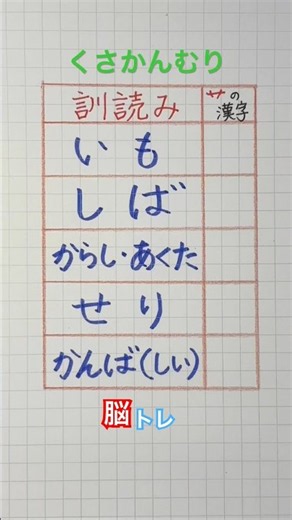 くさかんむり
訓読み 艹の漢字
いも
しば
からし・あくた
せり
かんば(しい)
脳トレ